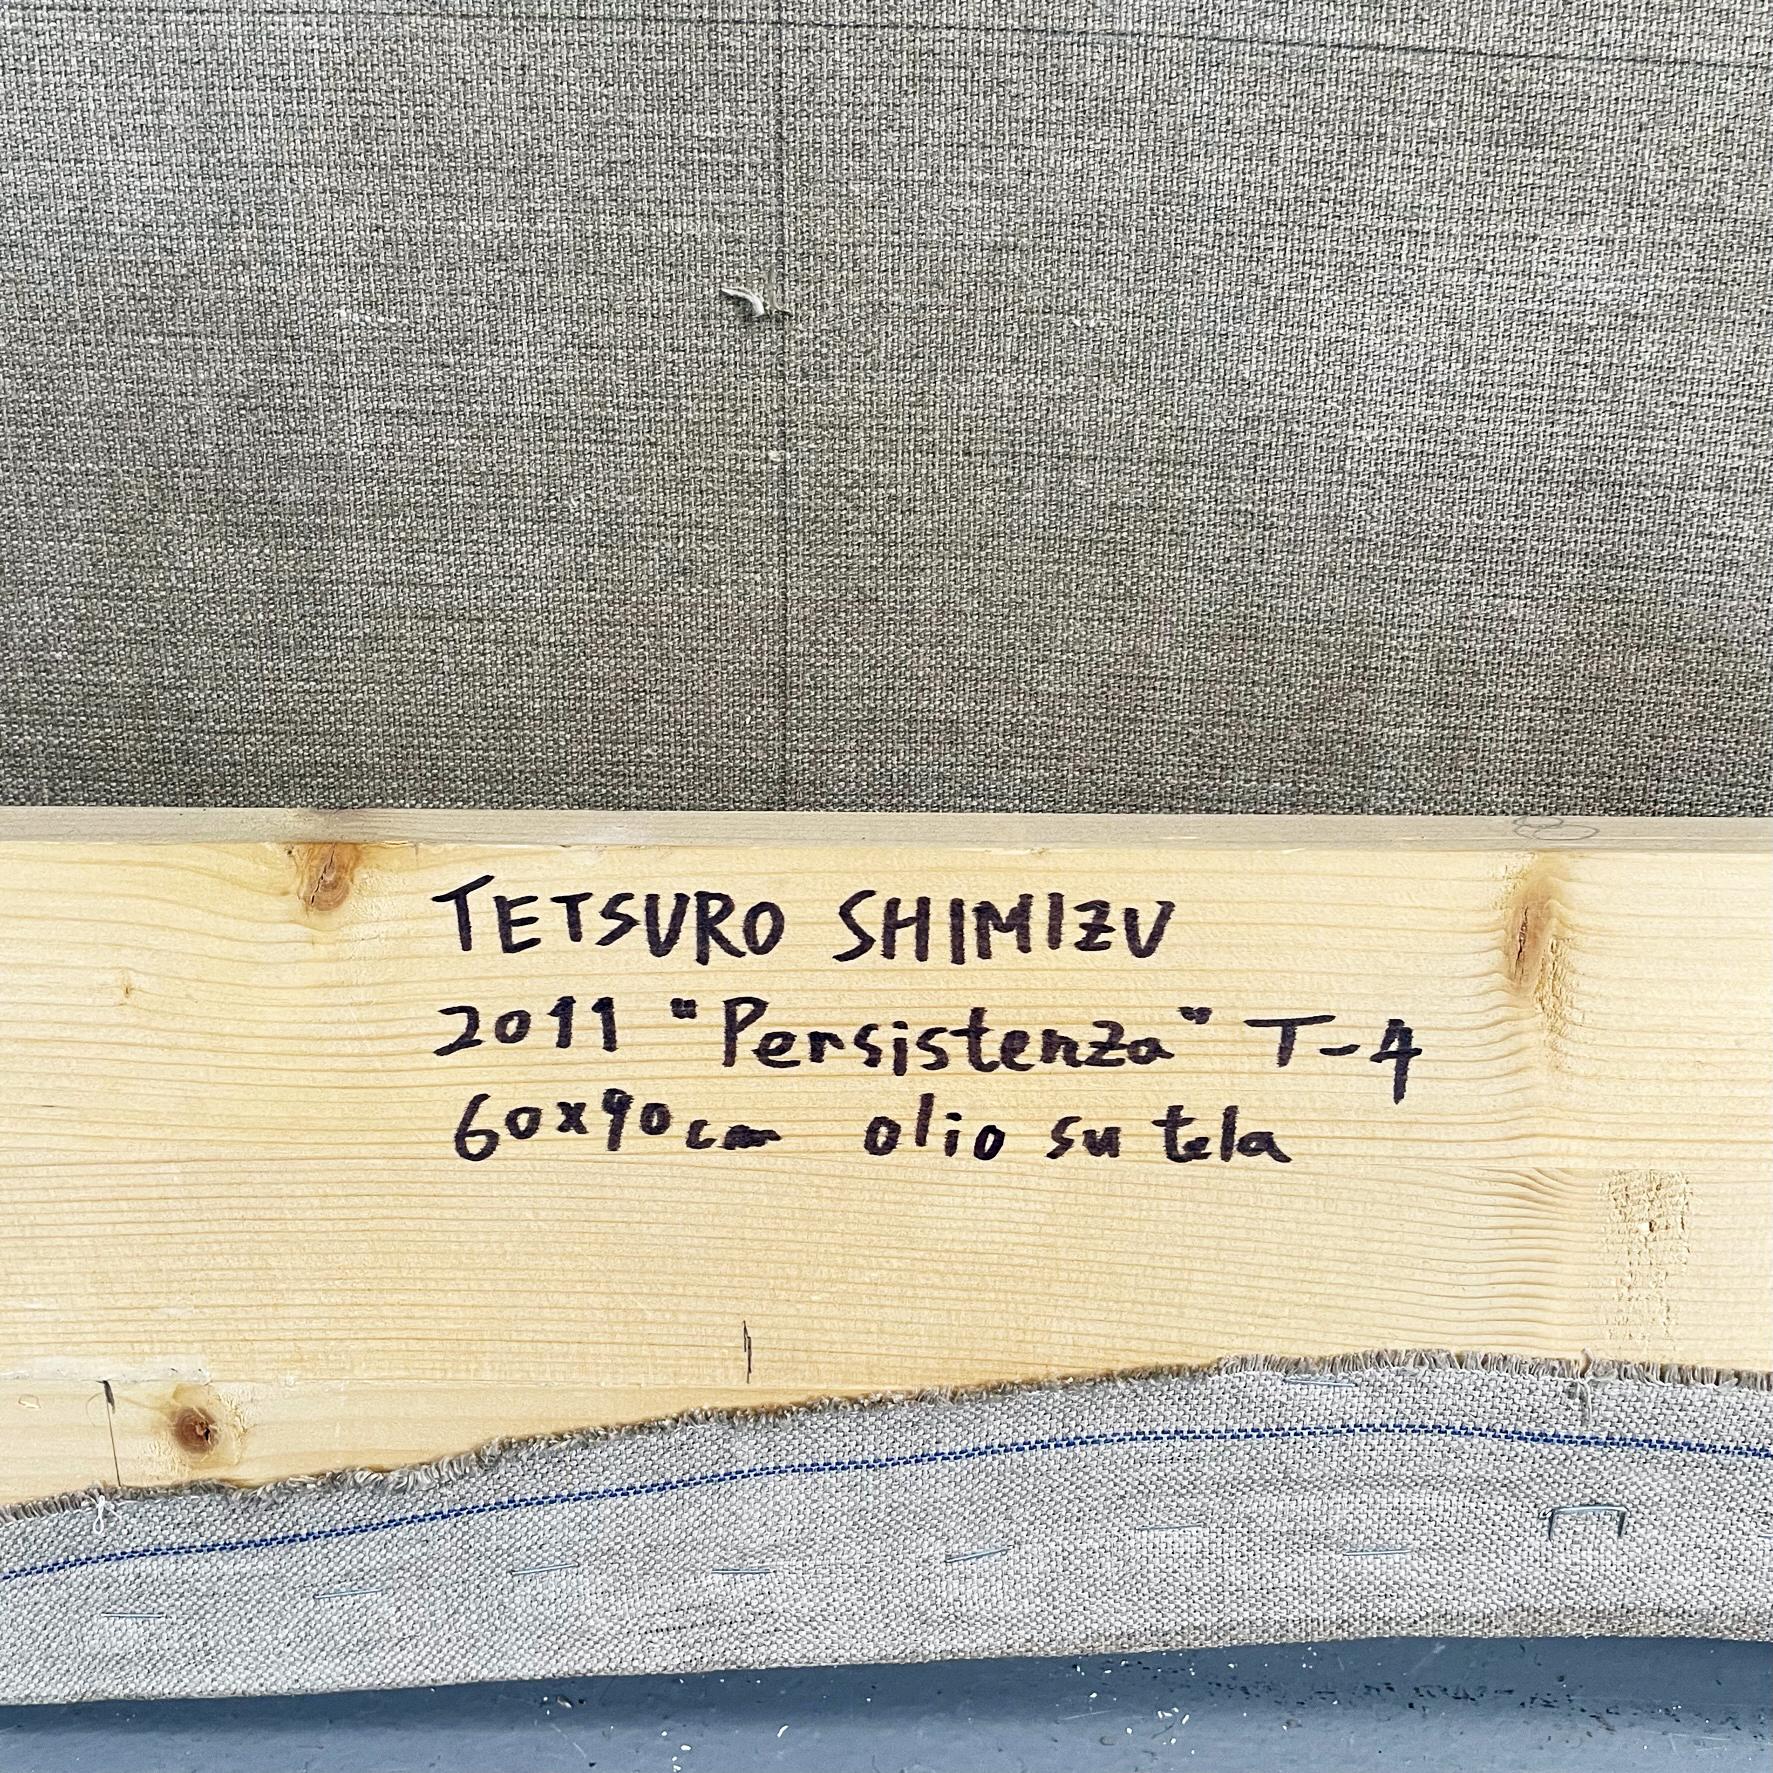 TETSURO SHIMIZU
2011 "Persistenza" T-4
60x90cm olio su tela